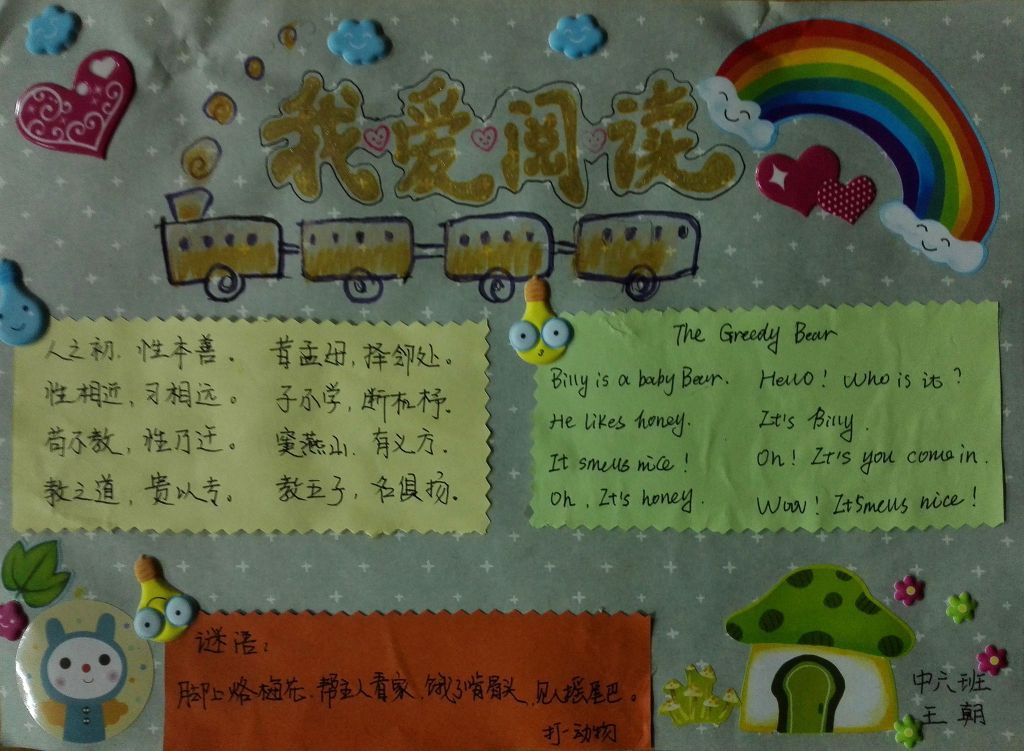 我爱阅读
人之初，性本善。
性相近，习相远。
苟不教，性乃迁。
教之道，贵以专。
昔孟母，择邻处。
子不学，断机杼。
窦燕山，有义方。
教五子，名俱扬。
The Greedy Bear
Billy is a baby Bear.
He likes honey.
It smells nice!
Oh, It's honey.
Hello! Who is it?
It's Billy.
Oh! It's you come in.
Wow! It smells nice!
谜语：
脚上烙梅花，帮主人看家，饿了啃骨头，见人摇尾巴。
打一动物
中六班
王朝